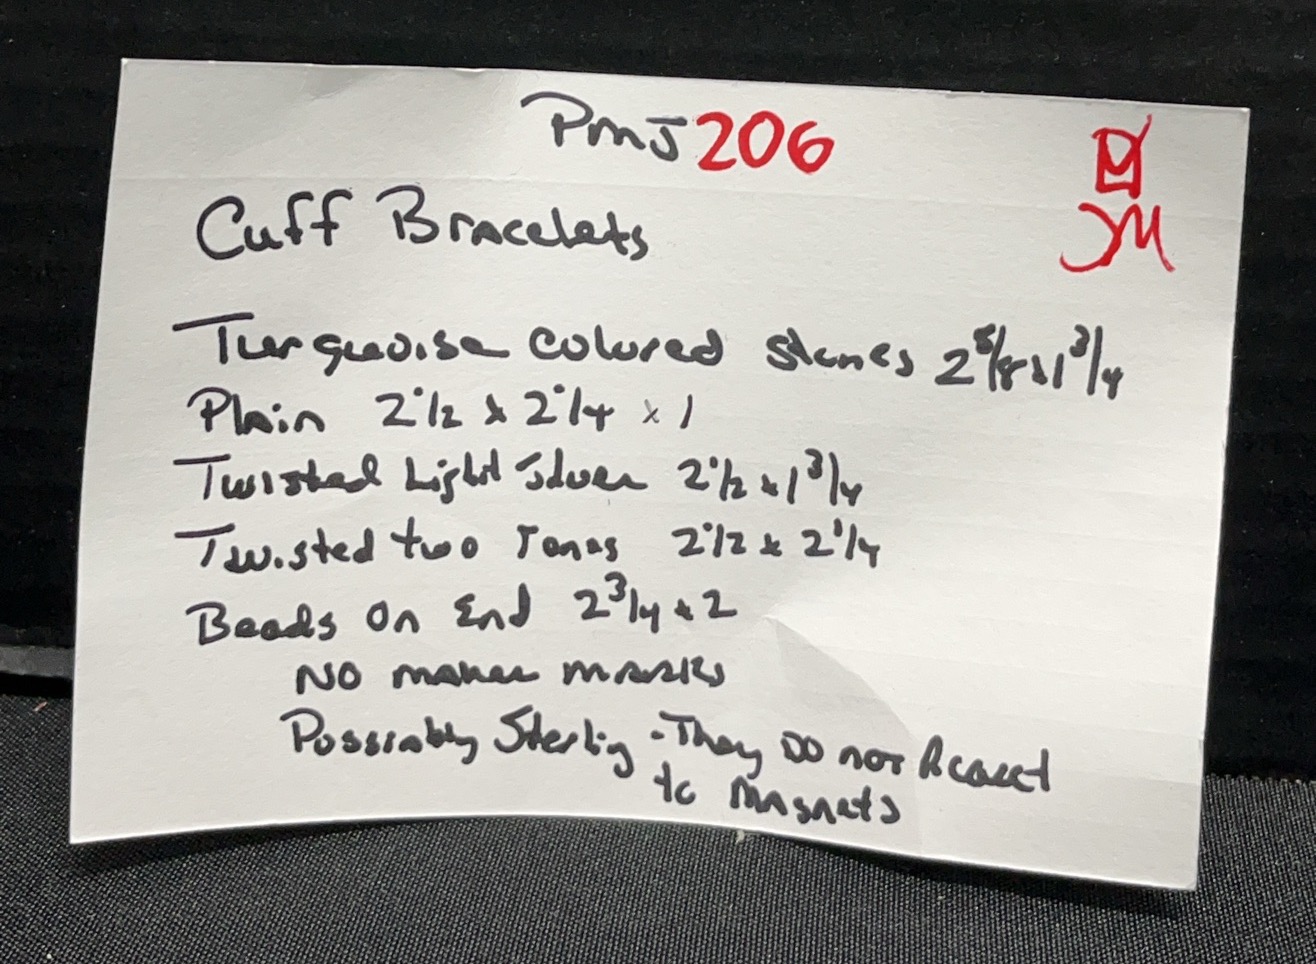 PMJ 206
JM
Cuff Bracelets
Turqueoise colored stones 2 5/8 x 1 3/4
Plain 2 1/2 x 2 1/4 x 1
Twisted Light Silver 2 1/2 x 1 3/4
Twisted two Tones 2 1/2 x 2 1/4
Beads On End 2 3/4 x 2
NO maker marks
Possiably Sterling - They DO not React
to Magnets